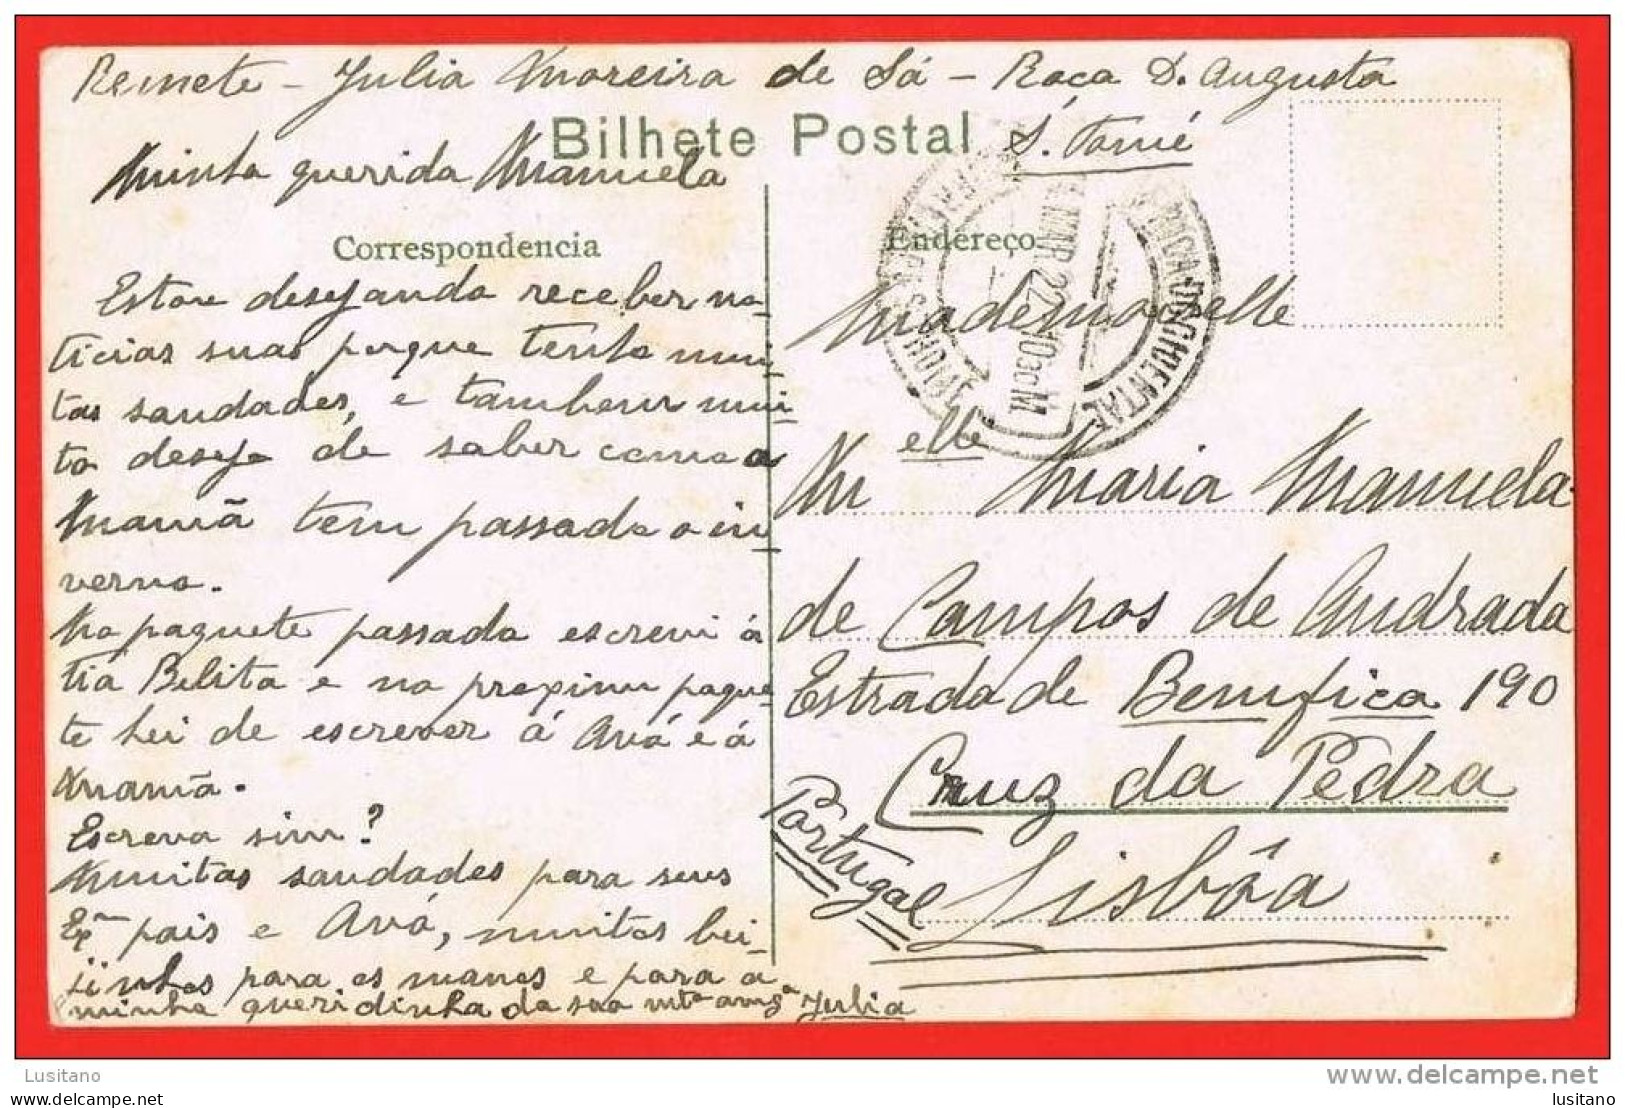 Remete - Julia Moreira de Sá - Roça D. Augusta
S. Tomé
Bilhete Postal
Minha querida Manuela
Correspondencia
Estou desejando receber no-
ticias suas porque tenho mui-
tas saudades, e tambem mui-
to desejo de saber como a
Mamã tem passado o in-
verno.
No paquete passado escrevi á
tia Belita e no proximo paque-
te hei de escrever á Avó e á
Mamã.
Escreva sim?
Muitas saudades para seus
Ex.mos pais e Avó, muitos bei-
jinhos para os manos e para a
minha queridinha da sua mta amga Julia
Endereço
MAR 22 10
OCCIDENTAL
Mademoiselle
Melle Maria Manuela
de Campos de Andrada
Estrada de Bemfica 190
Cruz da Pedra
Lisbôa
Portugal
Lusitano
www.delcampe.net
lusitano